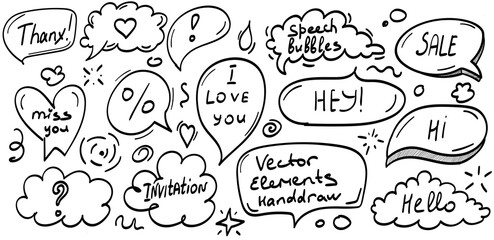 Thanx!
!
Speech
bubbles
SALE
miss
you
%
I
LOVE
YOU
HEY!
Hi
?
INVITATION
Vector
Elements
Handdraw
Hello